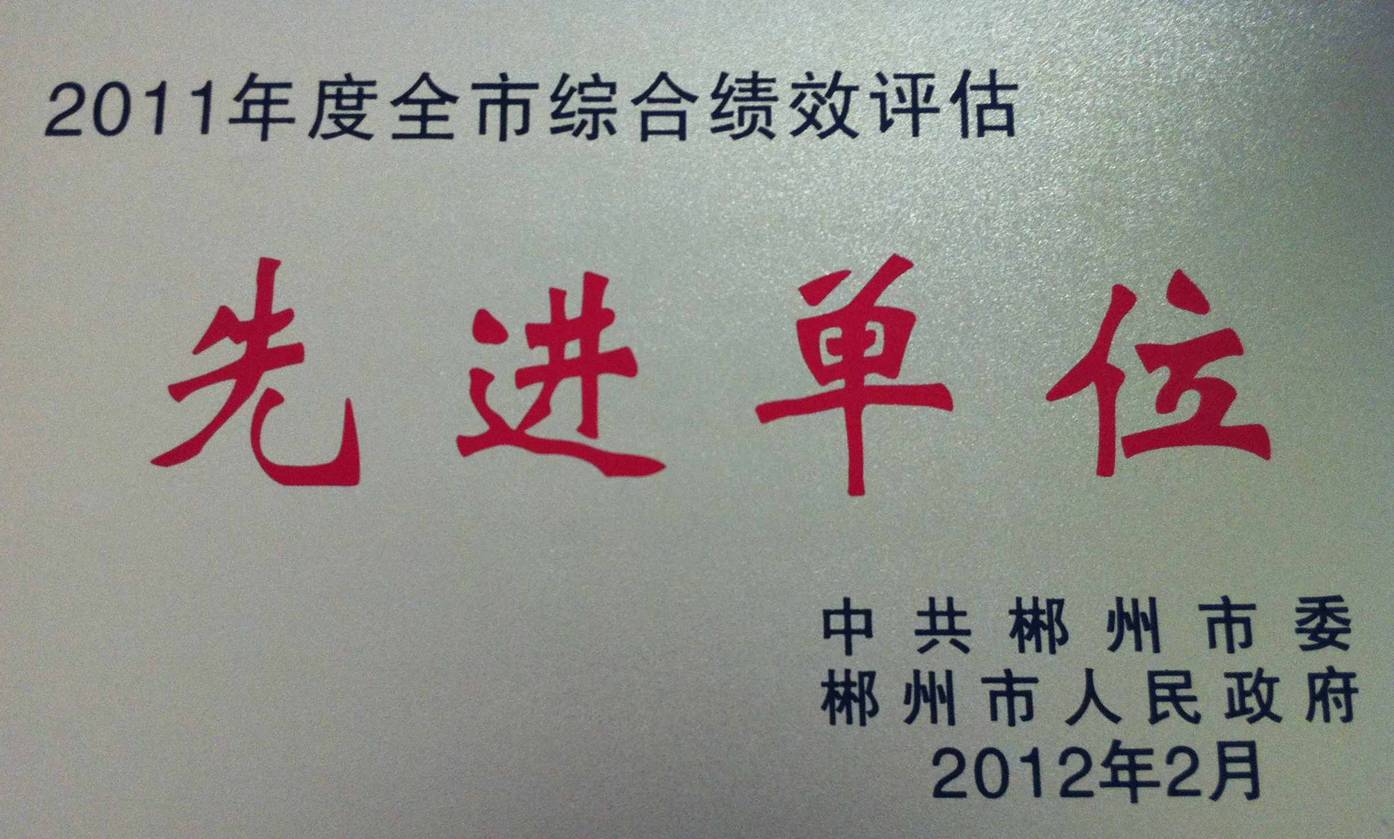 2011年度全市综合绩效评估
先进单位
中共郴州市委
郴州市人民政府
2012年2月